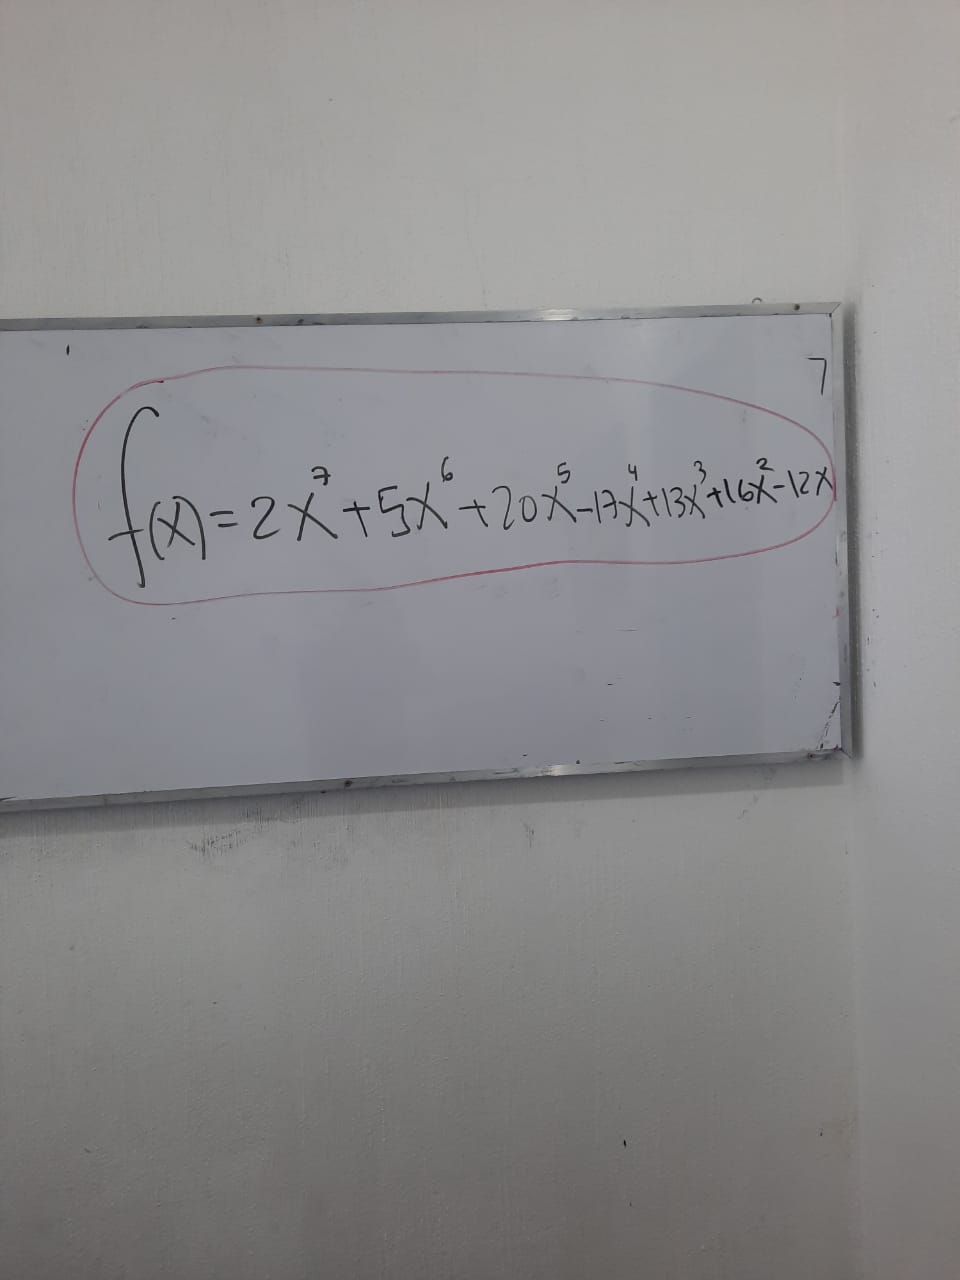 7
f(x)=2x⁷+5x⁶+20x⁵-17x⁴+13x³+16x²-12x